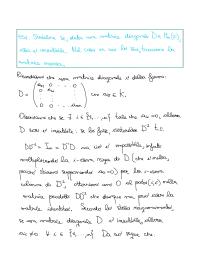 es. Stabilire se, data una matrice diagonale D ∈ Mn(K),
essa è invertibile. Nel caso in cui lo sia, trovare la
matrice inversa.
Ricordiamo che una matrice diagonale è della forma:
D = ( a11 0 ... 0
0 a22
0 0 ... ann ) con aii ∈ K.
Osserviamo che se ∃ i ∈ {1,...,n} tale che aii = 0, allora
D non è invertibile, se lo fosse, esisterebbe D⁻¹
DD⁻¹ = In = D⁻¹D ma ciò è impossibile, infatti
moltiplicando la i-esima riga di D (che è nulla,
perché stiamo supponendo aii = 0) per la i-esima
colonna di D⁻¹, otteniamo uno 0 al posto (i,i) nella
matrice prodotto DD⁻¹ che dunque non può essere la
matrice identità. Secondo lo stesso ragionamento,
se una matrice diagonale D è invertibile, allora
aii ≠ 0 ∀ i ∈ {1,...,n}. Da ciò segue che